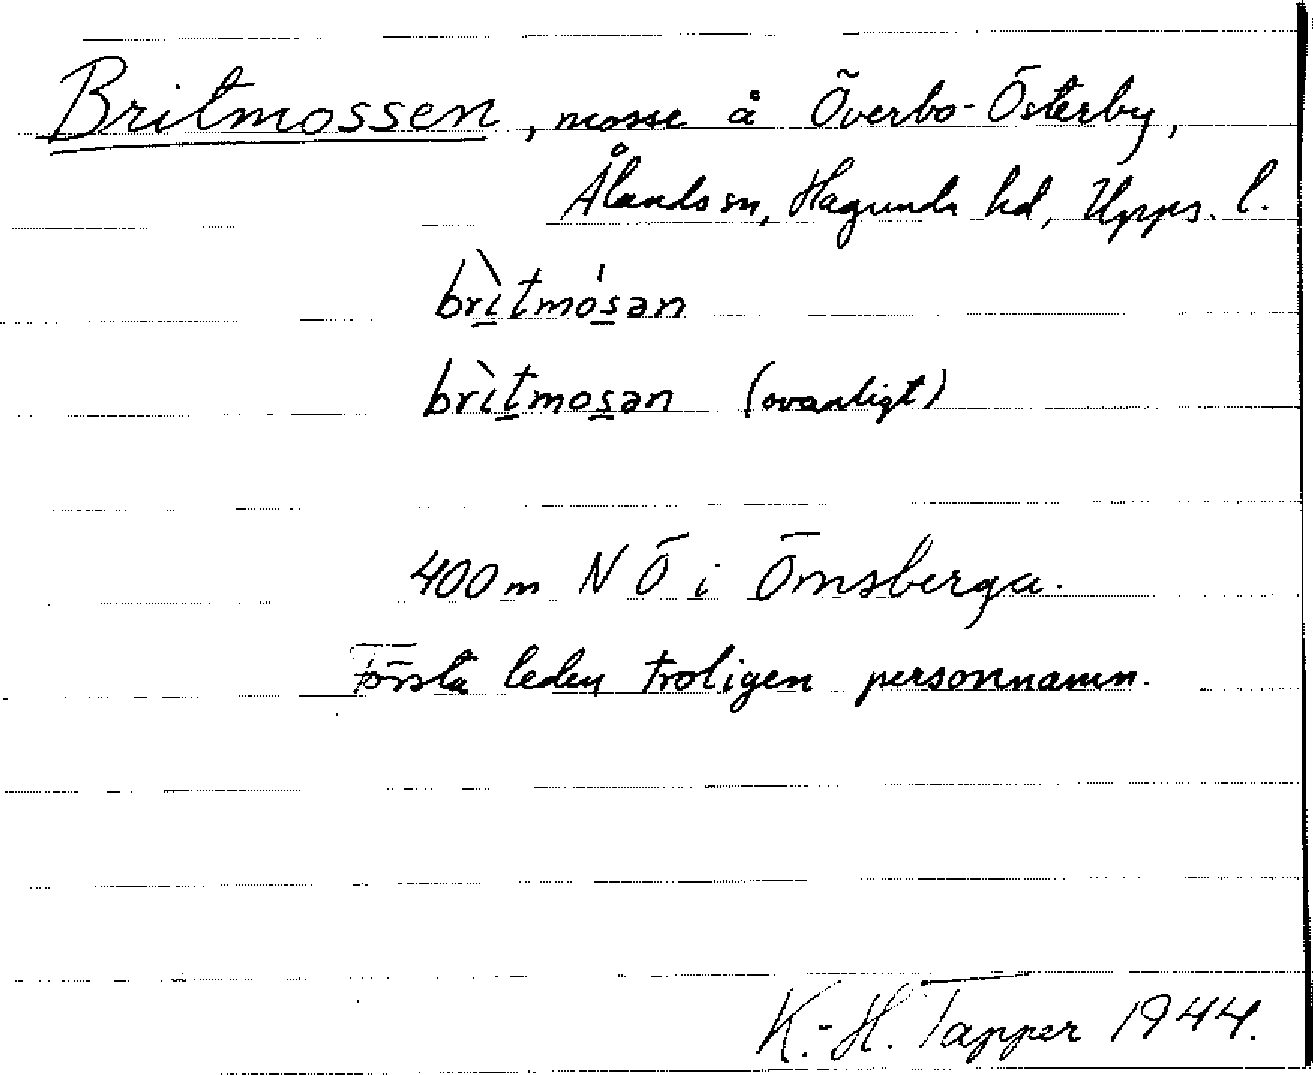 Britmossen, mosse å Överbo-Österby,
Ålands sn, Hagunda hd, Upps. l.
brìtmósan
brìtmosan (ovanligt)
400 m N Ö i Örnsberga.
Första leden troligen personnamn.
K.-H. Tapper 1944.